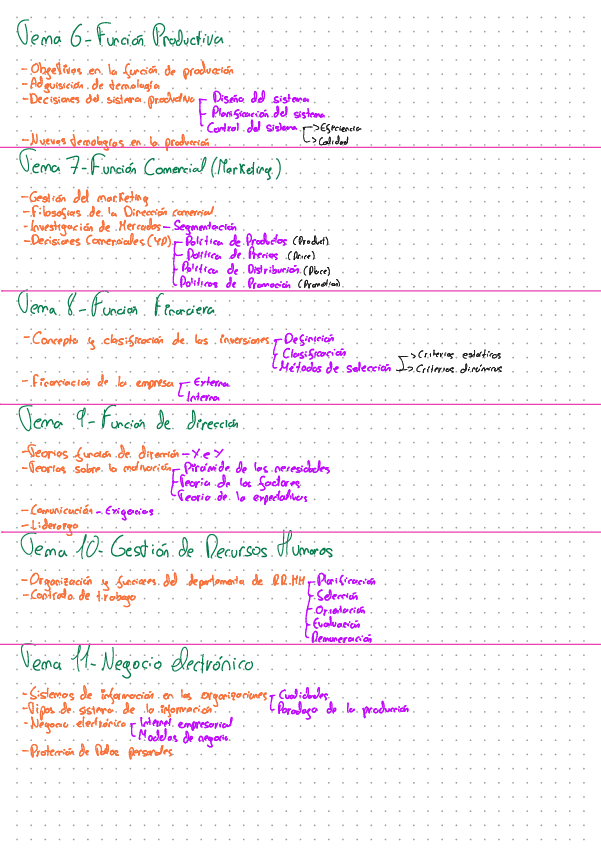 Tema 6- Función Productiva
- Objetivos en la función de producción
- Adquisición de tecnología
- Decisiones del sistema productivo - Diseño del sistema
- Planificación del sistema
- Control del sistema -> Eficiencia
-> Calidad
- Nuevas tecnologías en la producción
Tema 7- Función Comercial (Marketing)
- Gestión del marketing
- Filosofías de la Dirección comercial
- Investigación de Mercados - Segmentación
- Decisiones Comerciales (4P) - Política de Productos (Product)
- Política de Precios (Price)
- Política de Distribución (Place)
- Políticas de Promoción (Promotion)
Tema 8- Función Financiera
- Concepto y clasificación de las inversiones - Definición
- Clasificación
- Métodos de selección -> Criterios estáticos
-> Criterios dinámicos
- Financiación de la empresa - Externa
- Interna
Tema 9- Función de dirección
- Teorías función de dirección - X e Y
- Teorías sobre la motivación - Pirámide de las necesidades
- Teoría de los factores
- Teoría de la expectativas
- Comunicación - Exigencias
- Liderazgo
Tema 10- Gestión de Recursos Humanos
- Organización y funciones del departamento de RR.HH - Planificación
- Contrato de trabajo - Selección
- Orientación
- Evaluación
- Remuneración
Tema 11- Negocio electrónico
- Sistemas de información en las organizaciones - Cualidades
- Tipos de sistema de la información - Paradoja de la producción
- Negocio electrónico - Internet empresarial
- Modelos de negocio
- Protección de Datos personales